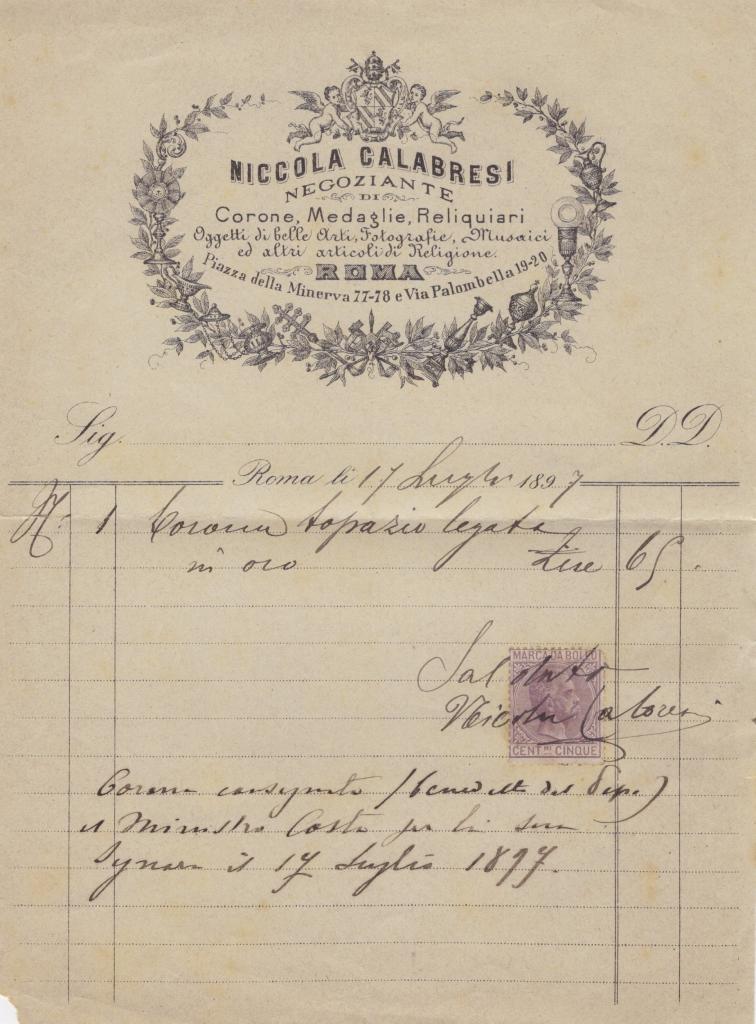 NICCOLA CALABRESI
NEGOZIANTE
DI
Corone, Medaglie, Reliquiari
Oggetti di belle Arti, Fotografie, Musaici
ed altri articoli di Religione.
ROMA
Piazza della Minerva 77-78 e Via Palombella 19-20
Sig. D. D.
Roma li 17 Luglio 1897
N. 1 Corona topazio legata
in oro Lire 65.
MARCA DA BOLLO
Saldato
Nicola Calabresi
CENT.MI CINQUE
Corona consegnata (benedetta dal Papa)
al Ministro Costa per la sua
Signora il 17 Luglio 1897.